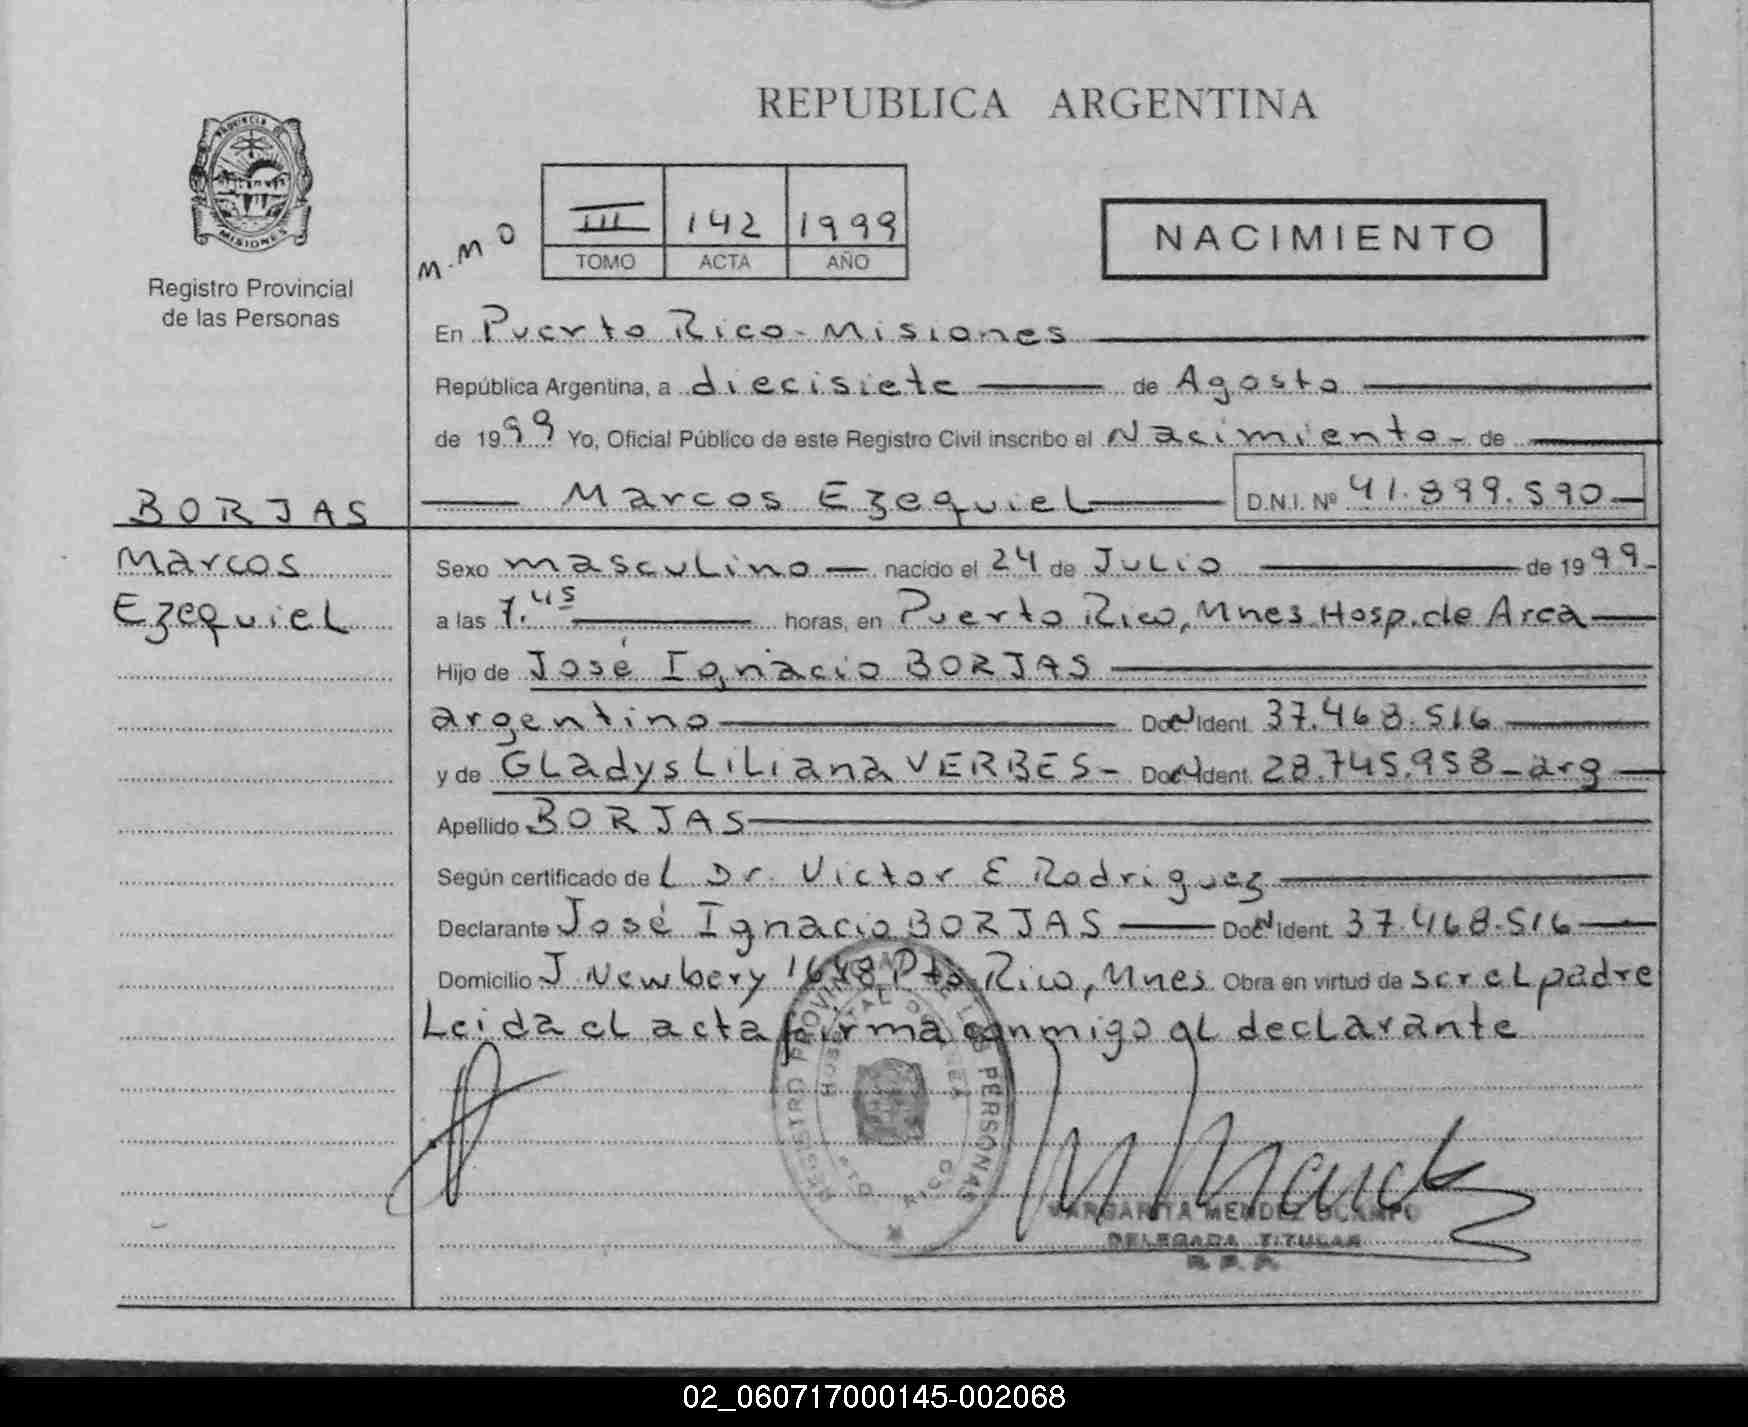 REPUBLICA ARGENTINA
PROVINCIA DE
MISIONES
Registro Provincial
de las Personas
M.M O
III 142 1999
TOMO ACTA AÑO
NACIMIENTO
En Puerto Rico - Misiones
República Argentina, a diecisiete de Agosto
de 1999 Yo, Oficial Público de este Registro Civil inscribo el Nacimiento - de
BORJAS
Marcos Ezequiel D.N.I. Nº 41.899.590
Marcos
Ezequiel
Sexo masculino nacido el 24 de Julio de 1999-
a las 7.45 horas, en Puerto Rico, Mnes. Hosp. de Area
Hijo de José Ignacio BORJAS
argentino Doc N Ident. 37.468.516
y de Gladys Liliana VERBES - Doc N Ident. 28.745.958 - arg
Apellido BORJAS
Según certificado de L Dr. Victor E Rodriguez
Declarante José Ignacio BORJAS Doc N Ident. 37.468.516
Domicilio J. Newbery 1648, Pto. Rico, Mnes Obra en virtud de ser el padre
Leida el acta firma conmigo el declarante
REGISTRO PROVINCIAL DE LAS PERSONAS
HOSPITAL DE AREA
PTO RICO
MARGARITA MENDEZ OCAMPO
DELEGADA TITULAR
R. P. P.
02_060717000145-002068